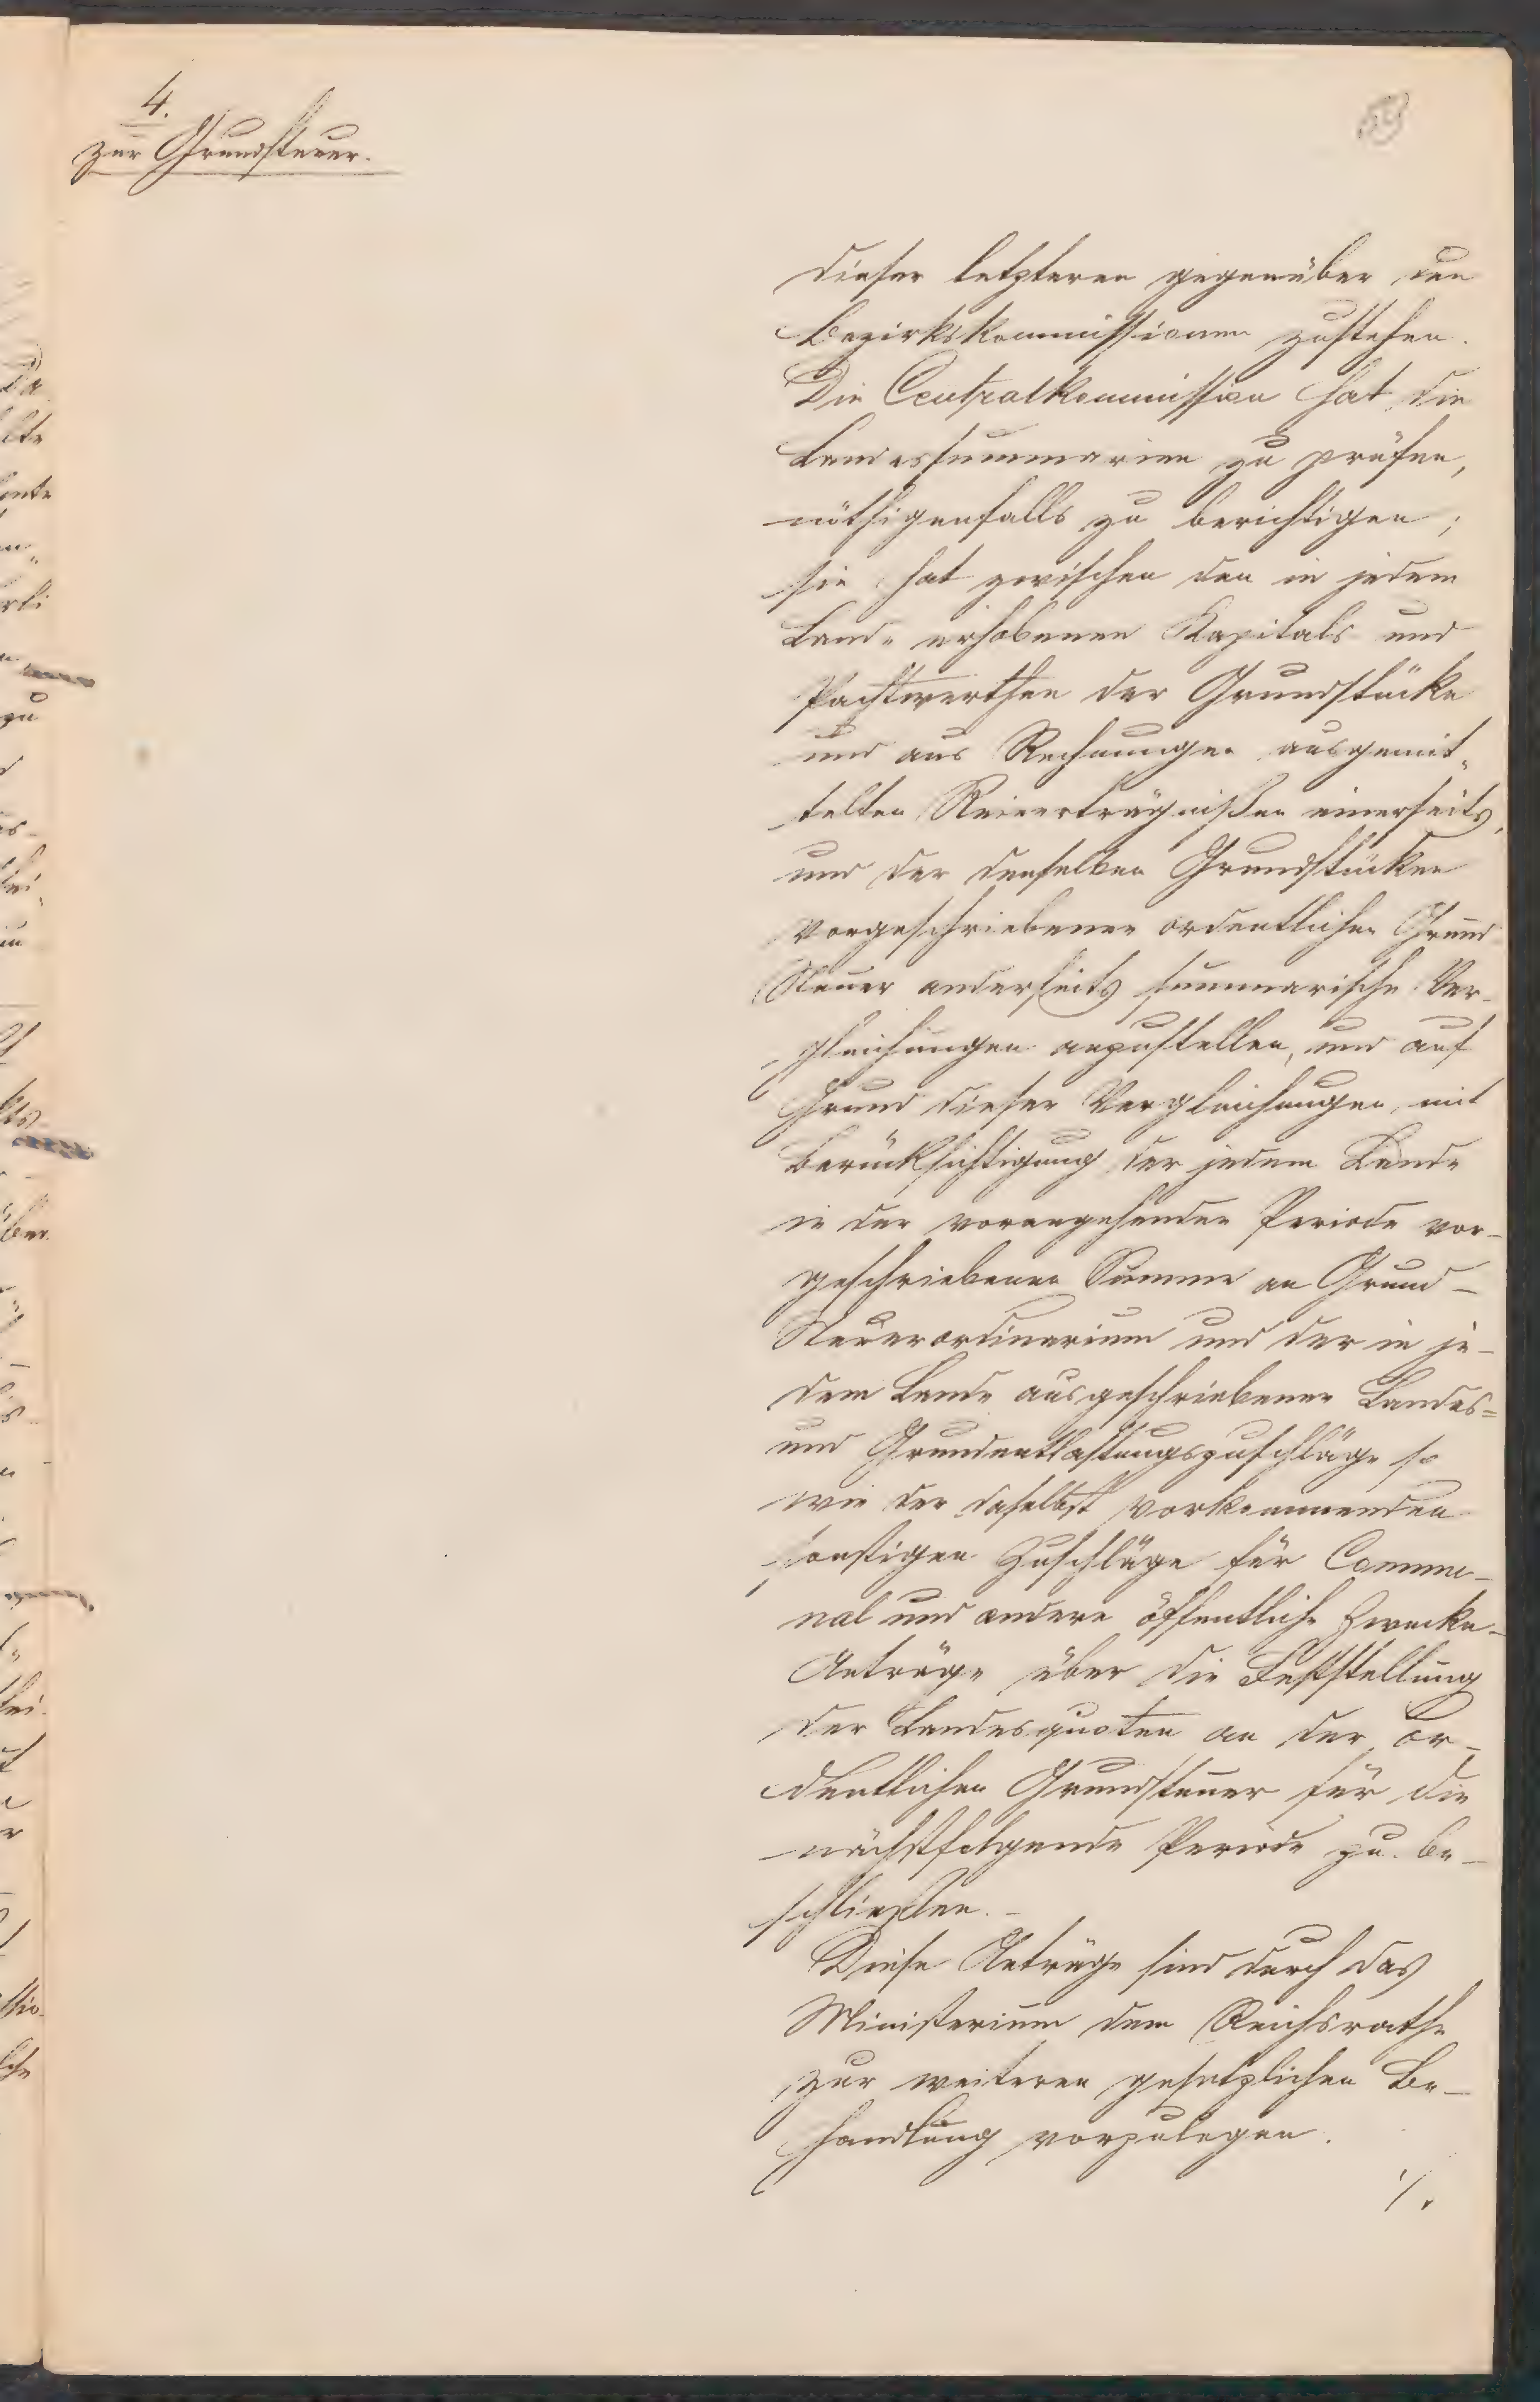 4.
zur Grundsteuer.
59
dieser letzteren gegenüber den
Bezirkskommissionen zustehen.
Die Centralkommission hat die
Landessummarien zu prüfen,
nöthigenfalls zu berichtigen;
sie hat zwischen den in jedem
Lande erhobenen Kapitals und
Pachtwerthen der Grundstücke
und aus Rechnungen ausgemit„
telten Reinerträgnißen einerseits,
und der denselben Grundstücken
vorgeschriebenen ordentlichen Grund
Steuer anderseits summarische Ver-
gleichungen anzustellen, und auf
Grund dieser Vergleichungen, mit
Berücksichtigung der jedem Lande
in der vorangehenden Periode vor-
geschriebenen Summe an Grund-
Steuerordinarium und der in je-
dem Lande ausgeschriebenen Landes=
und Grundentlastungszuschläge so
wie der daselbst vorkommenden
sonstigen Zuschläge für Commu-
nal und andere öffentliche Zwecke-
Anträge über die Feststellung
der Landesquoten an der or-
dentlichen Grundsteuer für die
nächstfolgende Periode zu be-
schließen.-
Diese Anträge sind durch das
Ministerium dem Reichsrathe
zur weiteren gesetzlichen Be-
handlung vorzulegen.
./.